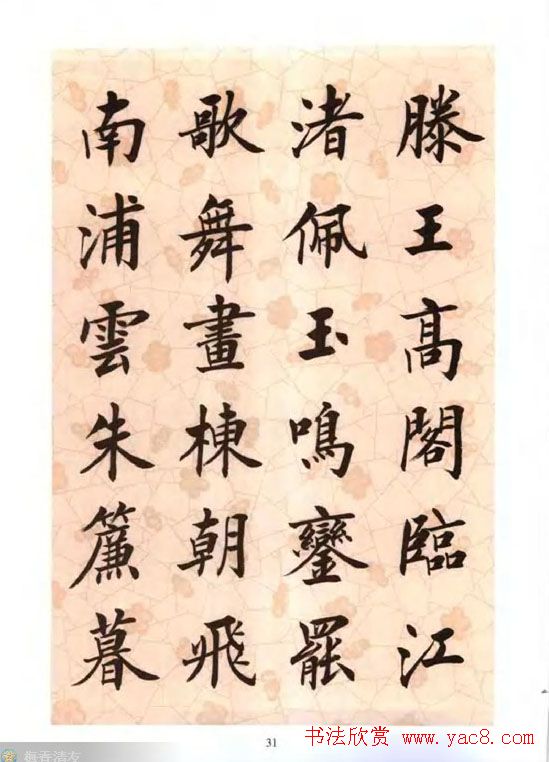 滕王高閣臨江
渚佩玉鳴鑾罷
歌舞畫棟朝飛
南浦雲朱簾暮
31
书法欣赏 www.yac8.com
梅香清友